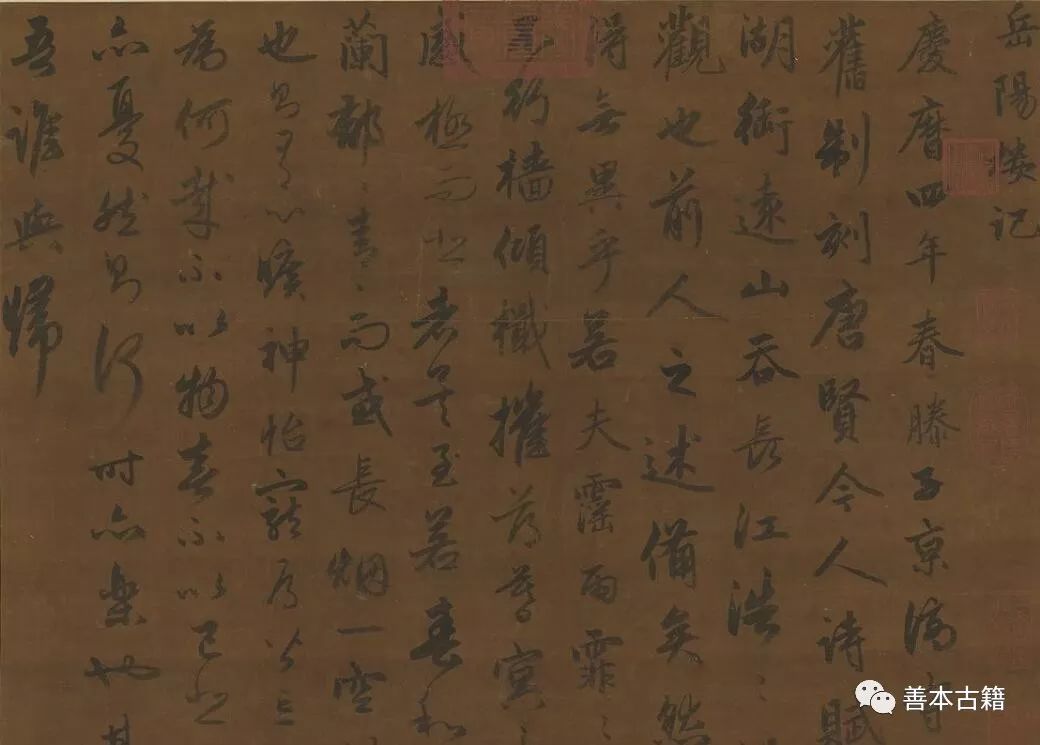 岳陽楼记
慶曆四年春滕子京謫守
舊制刻唐賢今人詩賦
湖銜遠山吞長江浩〻
觀也前人之述備矣然
得無異乎若夫霪雨霏〻
行檣傾檝摧薄暮冥〻
感極而悲者矣至若春和
蘭郁〻青〻而或長烟一空
也則有心曠神怡寵辱皆忘
為何哉不以物喜不以己悲
亦憂然則何時亦樂也其
吾誰與歸
善本古籍